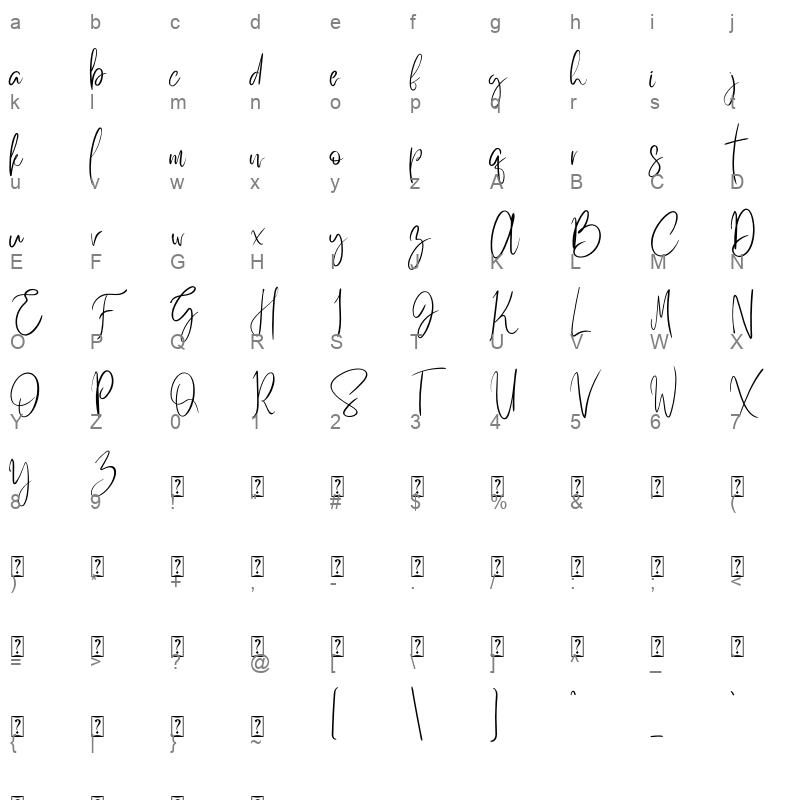 a b c d e f g h i j
a b c d e f g h i j
k l m n o p q r s t
k l m n o p q r s t
u v w x y z A B C D
u v w x y z A B C D
E F G H I J K L M N
E F G H I J K L M N
O P Q R S T U V W X
O P Q R S T U V W X
Y Z 0 1 2 3 4 5 6 7
Y Z ? ? ? ? ? ? ? ?
8 9 ! " # $ % & ' (
? ? ? ? ? ? ? ? ? ?
) * + , - . / : ; <
? ? ? ? ? ? ? ? ? ?
= > ? @ [ \ ] ^ _
? ? ? ? [ \ ] ^ _ `
{ | } ~